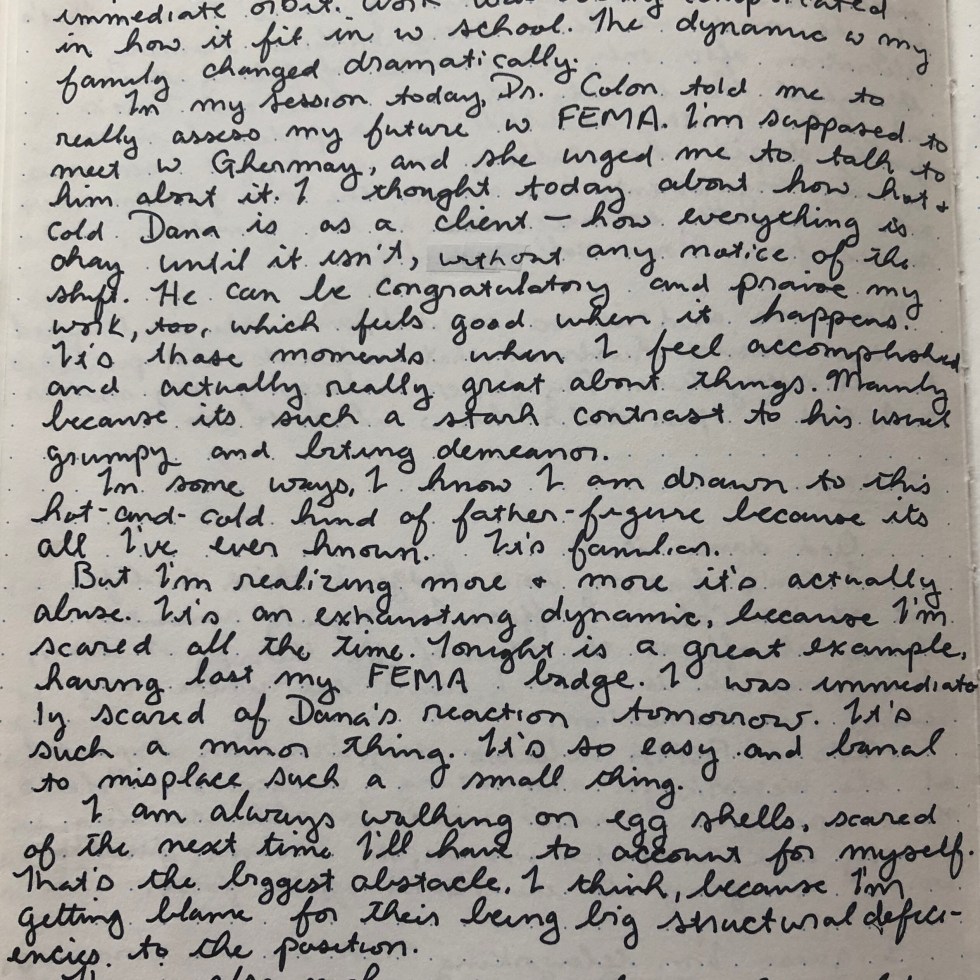 immediate orbit. Work was
in how it fit in w school. The dynamic w my
family changed dramatically.
In my session today, Dr. Colon told me to
really assess my future w FEMA. I'm supposed to
meet w Ghermay, and she urged me to talk to
him about it. I thought today about how hot +
cold Dana is as a client – how everything is
okay until it isn't, without any notice of the
shift. He can be congratulatory and praise my
work, too, which feels good when it happens.
It's those moments when I feel accomplished
and actually really great about things. Mainly
because its such a stark contrast to his usual
grumpy and biting demeanor.
In some ways, I know I am drawn to this
hot-and-cold kind of father-figure because its
all I've ever known. It's familiar.
But I'm realizing more + more it's actually
abuse. It's an exhausting dynamic, because I'm
scared all the time. Tonight is a great example,
having lost my FEMA badge. I was immediate
ly scared of Dana's reaction tomorrow. It's
such a minor thing. It's so easy and banal
to misplace such a small thing.
I am always walking on egg shells, scared
of the next time I'll have to account for myself.
That's the biggest obstacle, I think, because I'm
getting blame for their being big structural defici-
encies to the position.